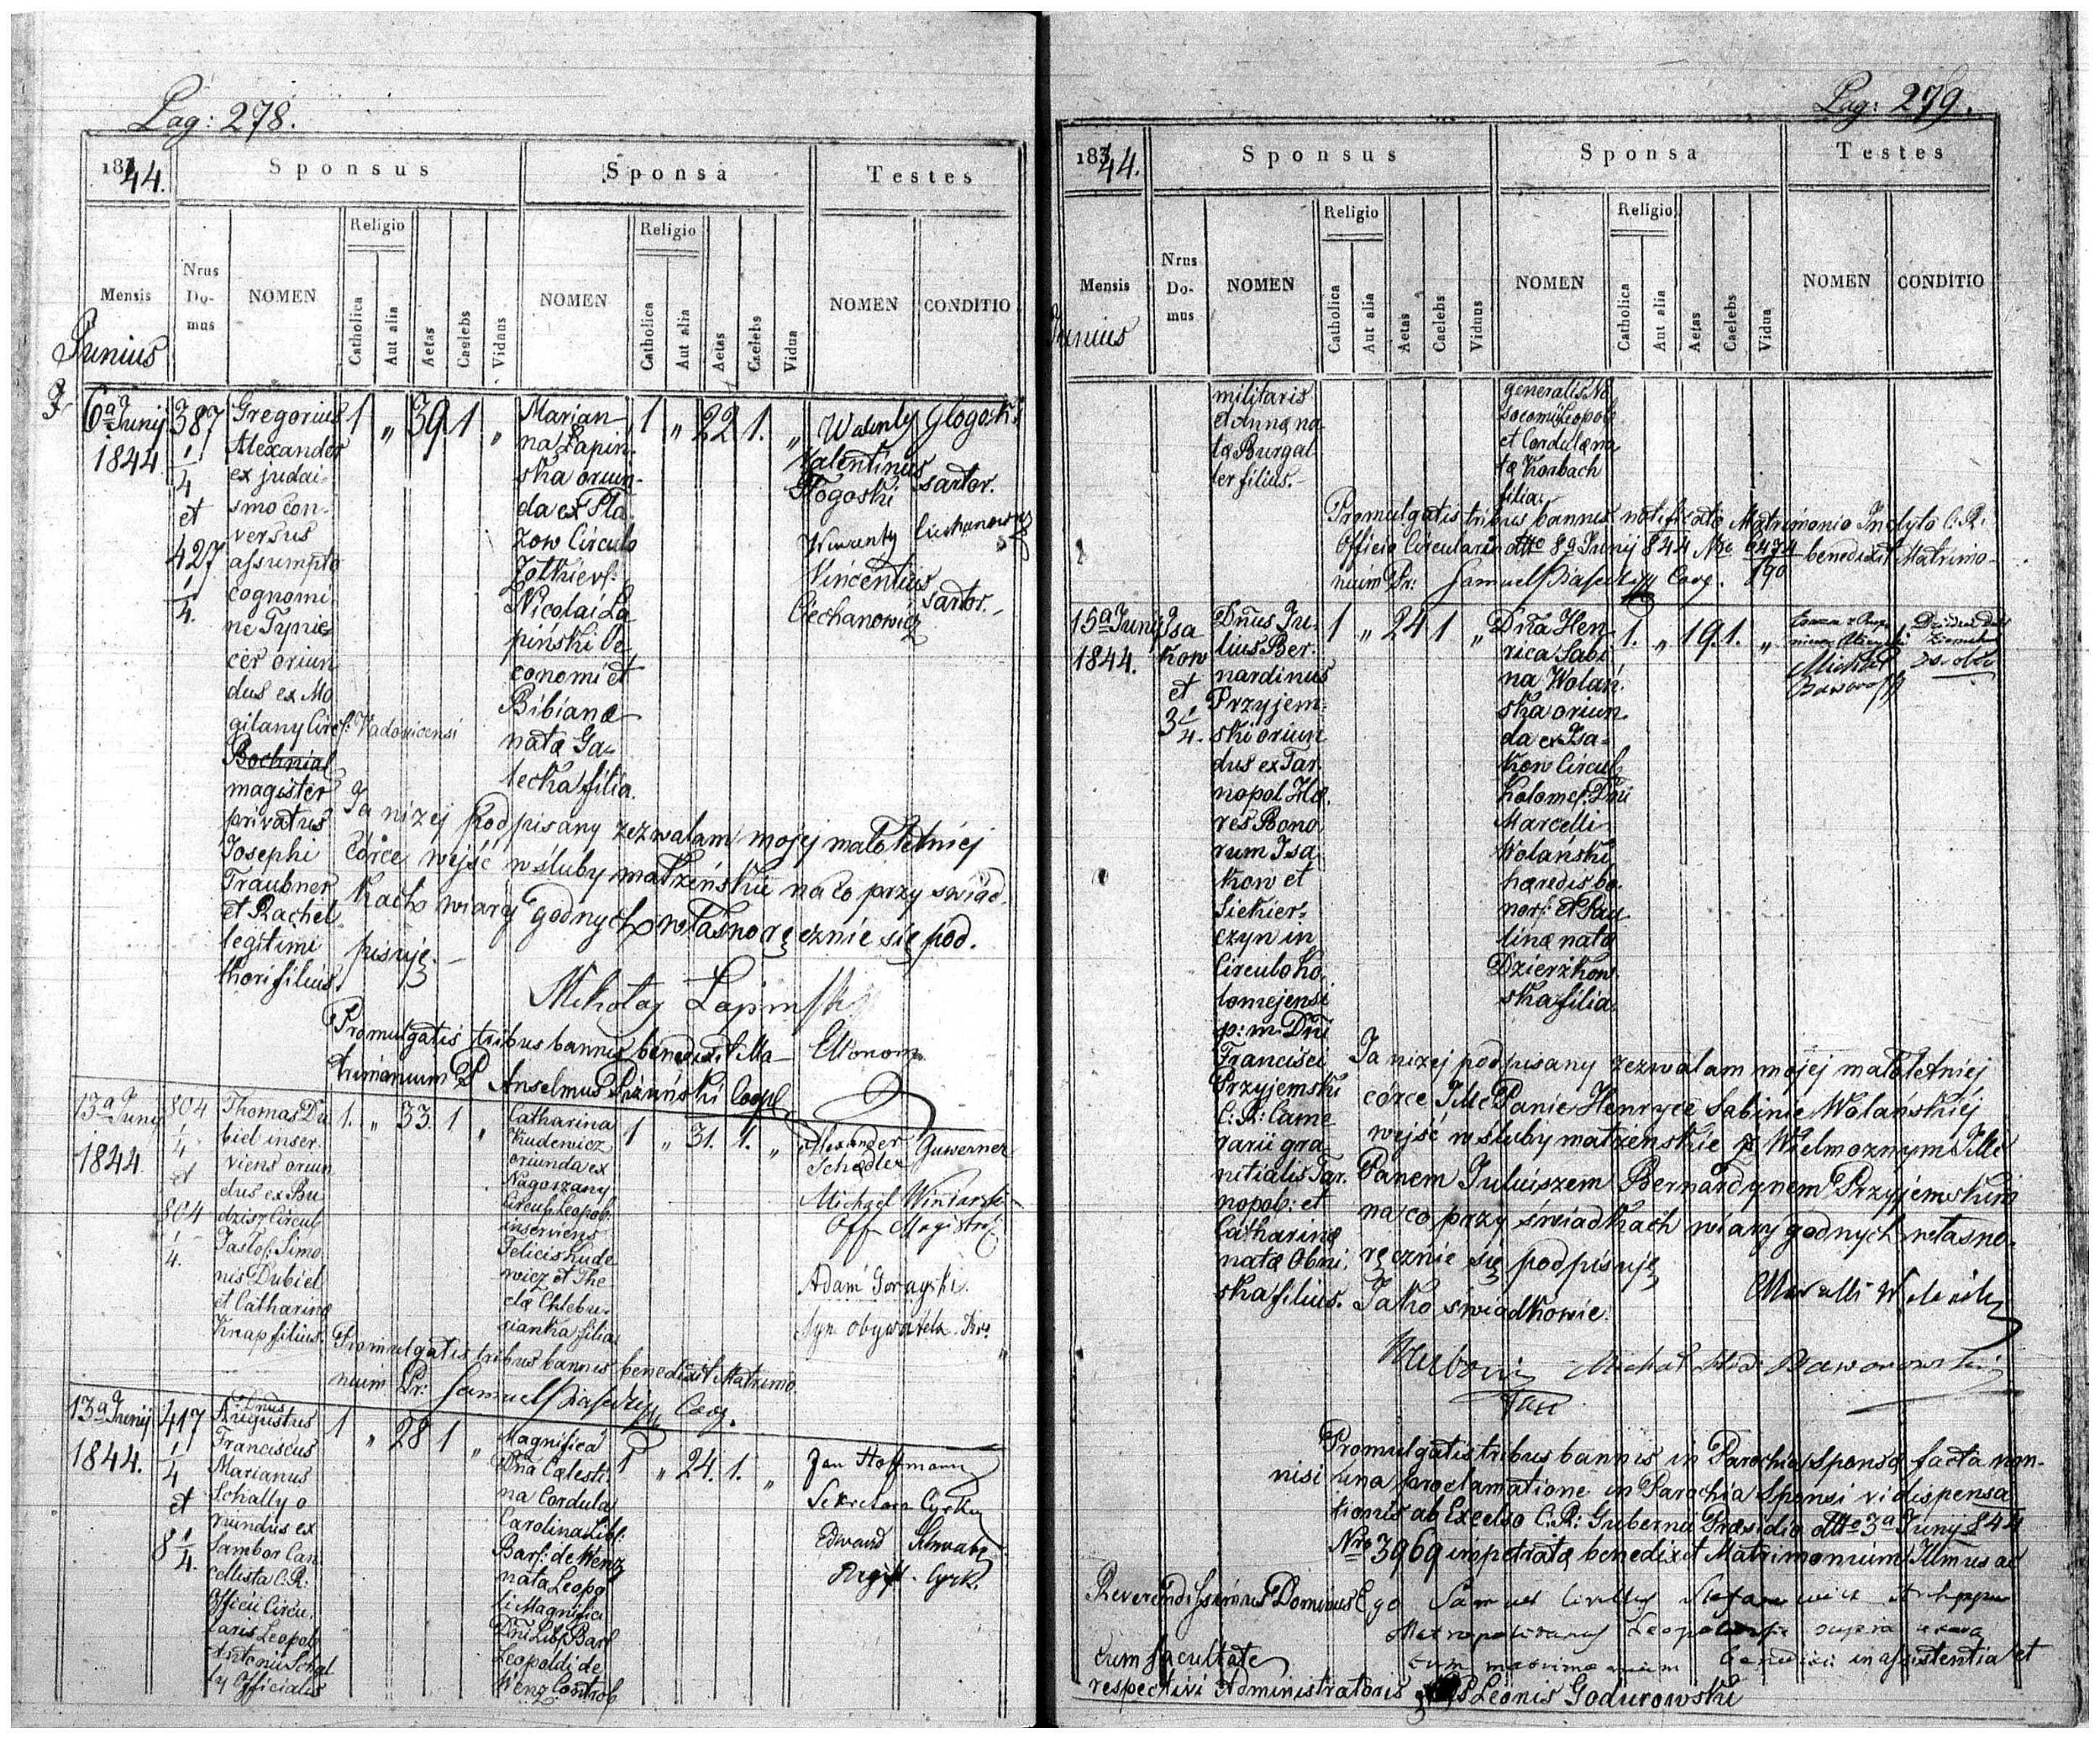 Pag: 278.
1844.
Sponsus
Sponsa
Testes
Mensis
Nrus Do-mus
NOMEN
Religio
Catholica
Aut alia
Aetas
Caelebs
Viduus
NOMEN
Religio
Catholica
Aut alia
Aetas
Caelebs
Vidua
NOMEN
CONDITIO
Junius
6a Junij
1844
387
1/4
et
427
1/4.
Gregorius
Alexander
ex judai-
smo con-
versus
assumpto
cognomi-
ne Tynie-
cer oriun
dus ex Mo
gilany Circ: Vadovicensi
Bochnial
magister
privatus
Josephi
Traubner
et Rachel
legitimi
thori filius.
1 " 39. 1 "
Marian-
na Łapin-
ska oriun-
da ex Pła-
zow Circulo
Zołkiew:
Nicolai Ła
piński Oe
conomi et
Bibianæ
natæ Ga-
lecka filia.
1 " 22 1. "
Walenty Glogoski
Valentinus
Głogoski sartor.
Wincenty Ciechanowicz
Vincentius
Ciechanowicz sartor.-
Ja niżej podpisany zezwalam mojej małoletniej
córce wejść w śluby małżeńskie na co przy świad-
kach wiary godnych własnoręcznie się pod-
pisuję.-
Mikołaj Łapiński
Ekonom
Promulgatis tribus bannis benedixit Ma-
trimonium P Anselmus Coop
13a Junij
1844
804
1/4
et
804
1/4.
Thomas Du
biel inser-
viens oriun
dus ex Bu
dzisz Circul
Jasłof: Simo
nis Dubiel
et Catharinæ
Knap filius.
1. " 33. 1 "
Catharina
Kudewicz
oriunda ex
Nagoszany
Circulo Leopol:
inserviens
Felicis Kude
wicz et The
clæ Chlebu-
sianka filia
1 " 31. 1. "
Alexander Guwerner
Schedler
Michael Winiarski
Off Magistr:
Adam Gorayski.
Syn obywatela
Promulgatis tribus bannis benedixit Matrimo
nium Pr: Samuel Coop.
13a Junij
1844.
417
1/4
et
8 1/4.
Dnus
Augustus
Franciscus
Marianus
Schally o
riundus ex
Sambor Can
cellista C: R:
Officii Circu-
laris Leopol:
Antonii Schal
ly Officialis
1 " 28 1 "
Magnifica
Dna Cælesti-
na Cordula
Carolina Lib:
Bar: de Wenz
nata Leopol
li Magnifici
Dni Lib: Bar
Leopoldi de
Wenz Control
1 " 24. 1. "
Jan Hoffmann
Sekretarz Cyrku
Edward Schwabe
Regist. Cyrk.
Pag: 279.
1844.
Sponsus
Sponsa
Testes
Mensis
Nrus Do-mus
NOMEN
Religio
Catholica
Aut alia
Aetas
Caelebs
Viduus
NOMEN
Religio
Catholica
Aut alia
Aetas
Caelebs
Vidua
NOMEN
CONDITIO
Junius
militaris
et Annæ na-
tæ Burgal-
ter filius.-
generalis No
socomii Leopol
et Cordulæ na
tæ Korbach
filia.
Promulgatis tribus bannis notificato Matrimonio Inclyto C. R.
Officio Circulari ddto 8a Junij 844 Nro 6474/190 benedixit Matrimo-
nium Pr: Samuel Coop.
15a Junij
1844.
Isa
kow
et
3 1/4.
Dnus Ju-
lius Ber-
nardinus
Przyjem-
ski oriun
dus ex Tar-
nopol Hæ-
res Bono
rum Isa-
kow et
Siekier-
czyn in
Circulo Ko-
lomejensi
p: m: Dni
Francisci
Przyjemski
C. R: Came
rarii gra-
nitialis Tar-
nopol: et
Catharinæ
natæ Obni-
ska filius.
1 " 24 1 "
Dna Hen
rica Sabi
na Wolań-
ska oriun
da ex Isa-
kow Circul
Kolomej: Dni
Marcelli
Wolański
hæredis bo-
nor: et Pau
linæ natæ
Dzierżkow-
ska filia
1. " 19. 1. "
Michał
Ja niżej podpisany zezwalam mojej małoletniej
córce JMc Panie Henryce Sabinie Wolańskiéj
wejść w śluby małżenskie z Wielmoznym JMc
Panem Juliuszem Bernardynem Przyjemskim
na co przy świadkach wiary godnych własno-
ręcznie się podpisuję
Marcelli Wolański
Jako świadkowie.
Michał Hrd: Baworowski
Promulgatis tribus bannis in Parochia Sponsæ facta non-
nisi una proclamatione in Parochia Sponsi vi dispensa
tionis ab Excelso C. R: Gubernii Præsidio ddto 3a Junij 844
Nro 3969 impetratæ benedixit Matrimonium Illmus ac
Reverendissimus Dominus Ego Samuel Cyrillus Stefanowicz
Metropolitanus Leopoliensis
cum facultate benedixi in assistentia et
respectivi Administratoris P Leonis Godurowski